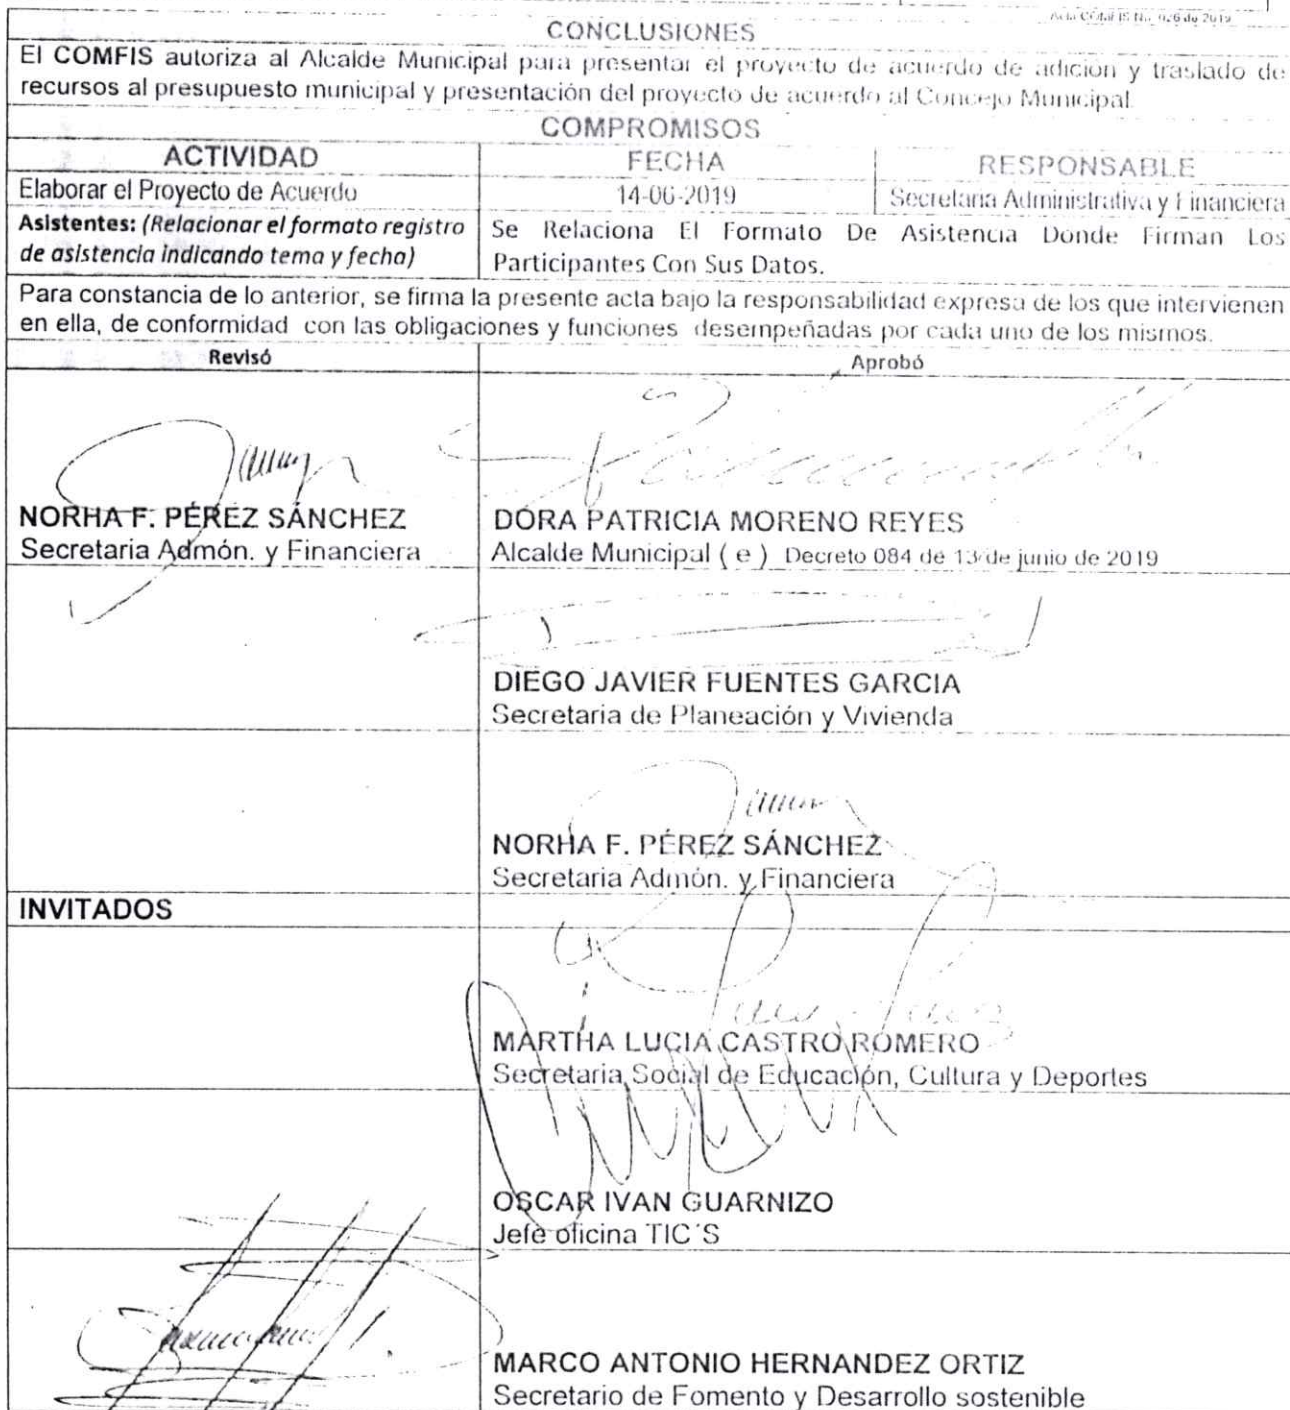 Acta COMFIS No. 026 de 2019
CONCLUSIONES
El COMFIS autoriza al Alcalde Municipal para presentar el proyecto de acuerdo de adición y traslado de
recursos al presupuesto municipal y presentación del proyecto de acuerdo al Concejo Municipal.
COMPROMISOS
ACTIVIDAD FECHA RESPONSABLE
Elaborar el Proyecto de Acuerdo 14-06-2019 Secretaria Administrativa y Financiera
Asistentes: (Relacionar el formato registro
de asistencia indicando tema y fecha)
Se Relaciona El Formato De Asistencia Donde Firman Los
Participantes Con Sus Datos.
Para constancia de lo anterior, se firma la presente acta bajo la responsabilidad expresa de los que intervienen
en ella, de conformidad con las obligaciones y funciones desempeñadas por cada uno de los mismos.
Revisó Aprobó
NORHA F. PÉREZ SÁNCHEZ
Secretaria Admón. y Financiera
DORA PATRICIA MORENO REYES
Alcalde Municipal ( e ) Decreto 084 de 13 de junio de 2019
DIEGO JAVIER FUENTES GARCIA
Secretaria de Planeación y Vivienda
NORHA F. PÉREZ SÁNCHEZ
Secretaria Admón. y Financiera
INVITADOS
MARTHA LUCIA CASTRO ROMERO
Secretaria Social de Educación, Cultura y Deportes
OSCAR IVAN GUARNIZO
Jefe oficina TIC´S
MARCO ANTONIO HERNANDEZ ORTIZ
Secretario de Fomento y Desarrollo sostenible